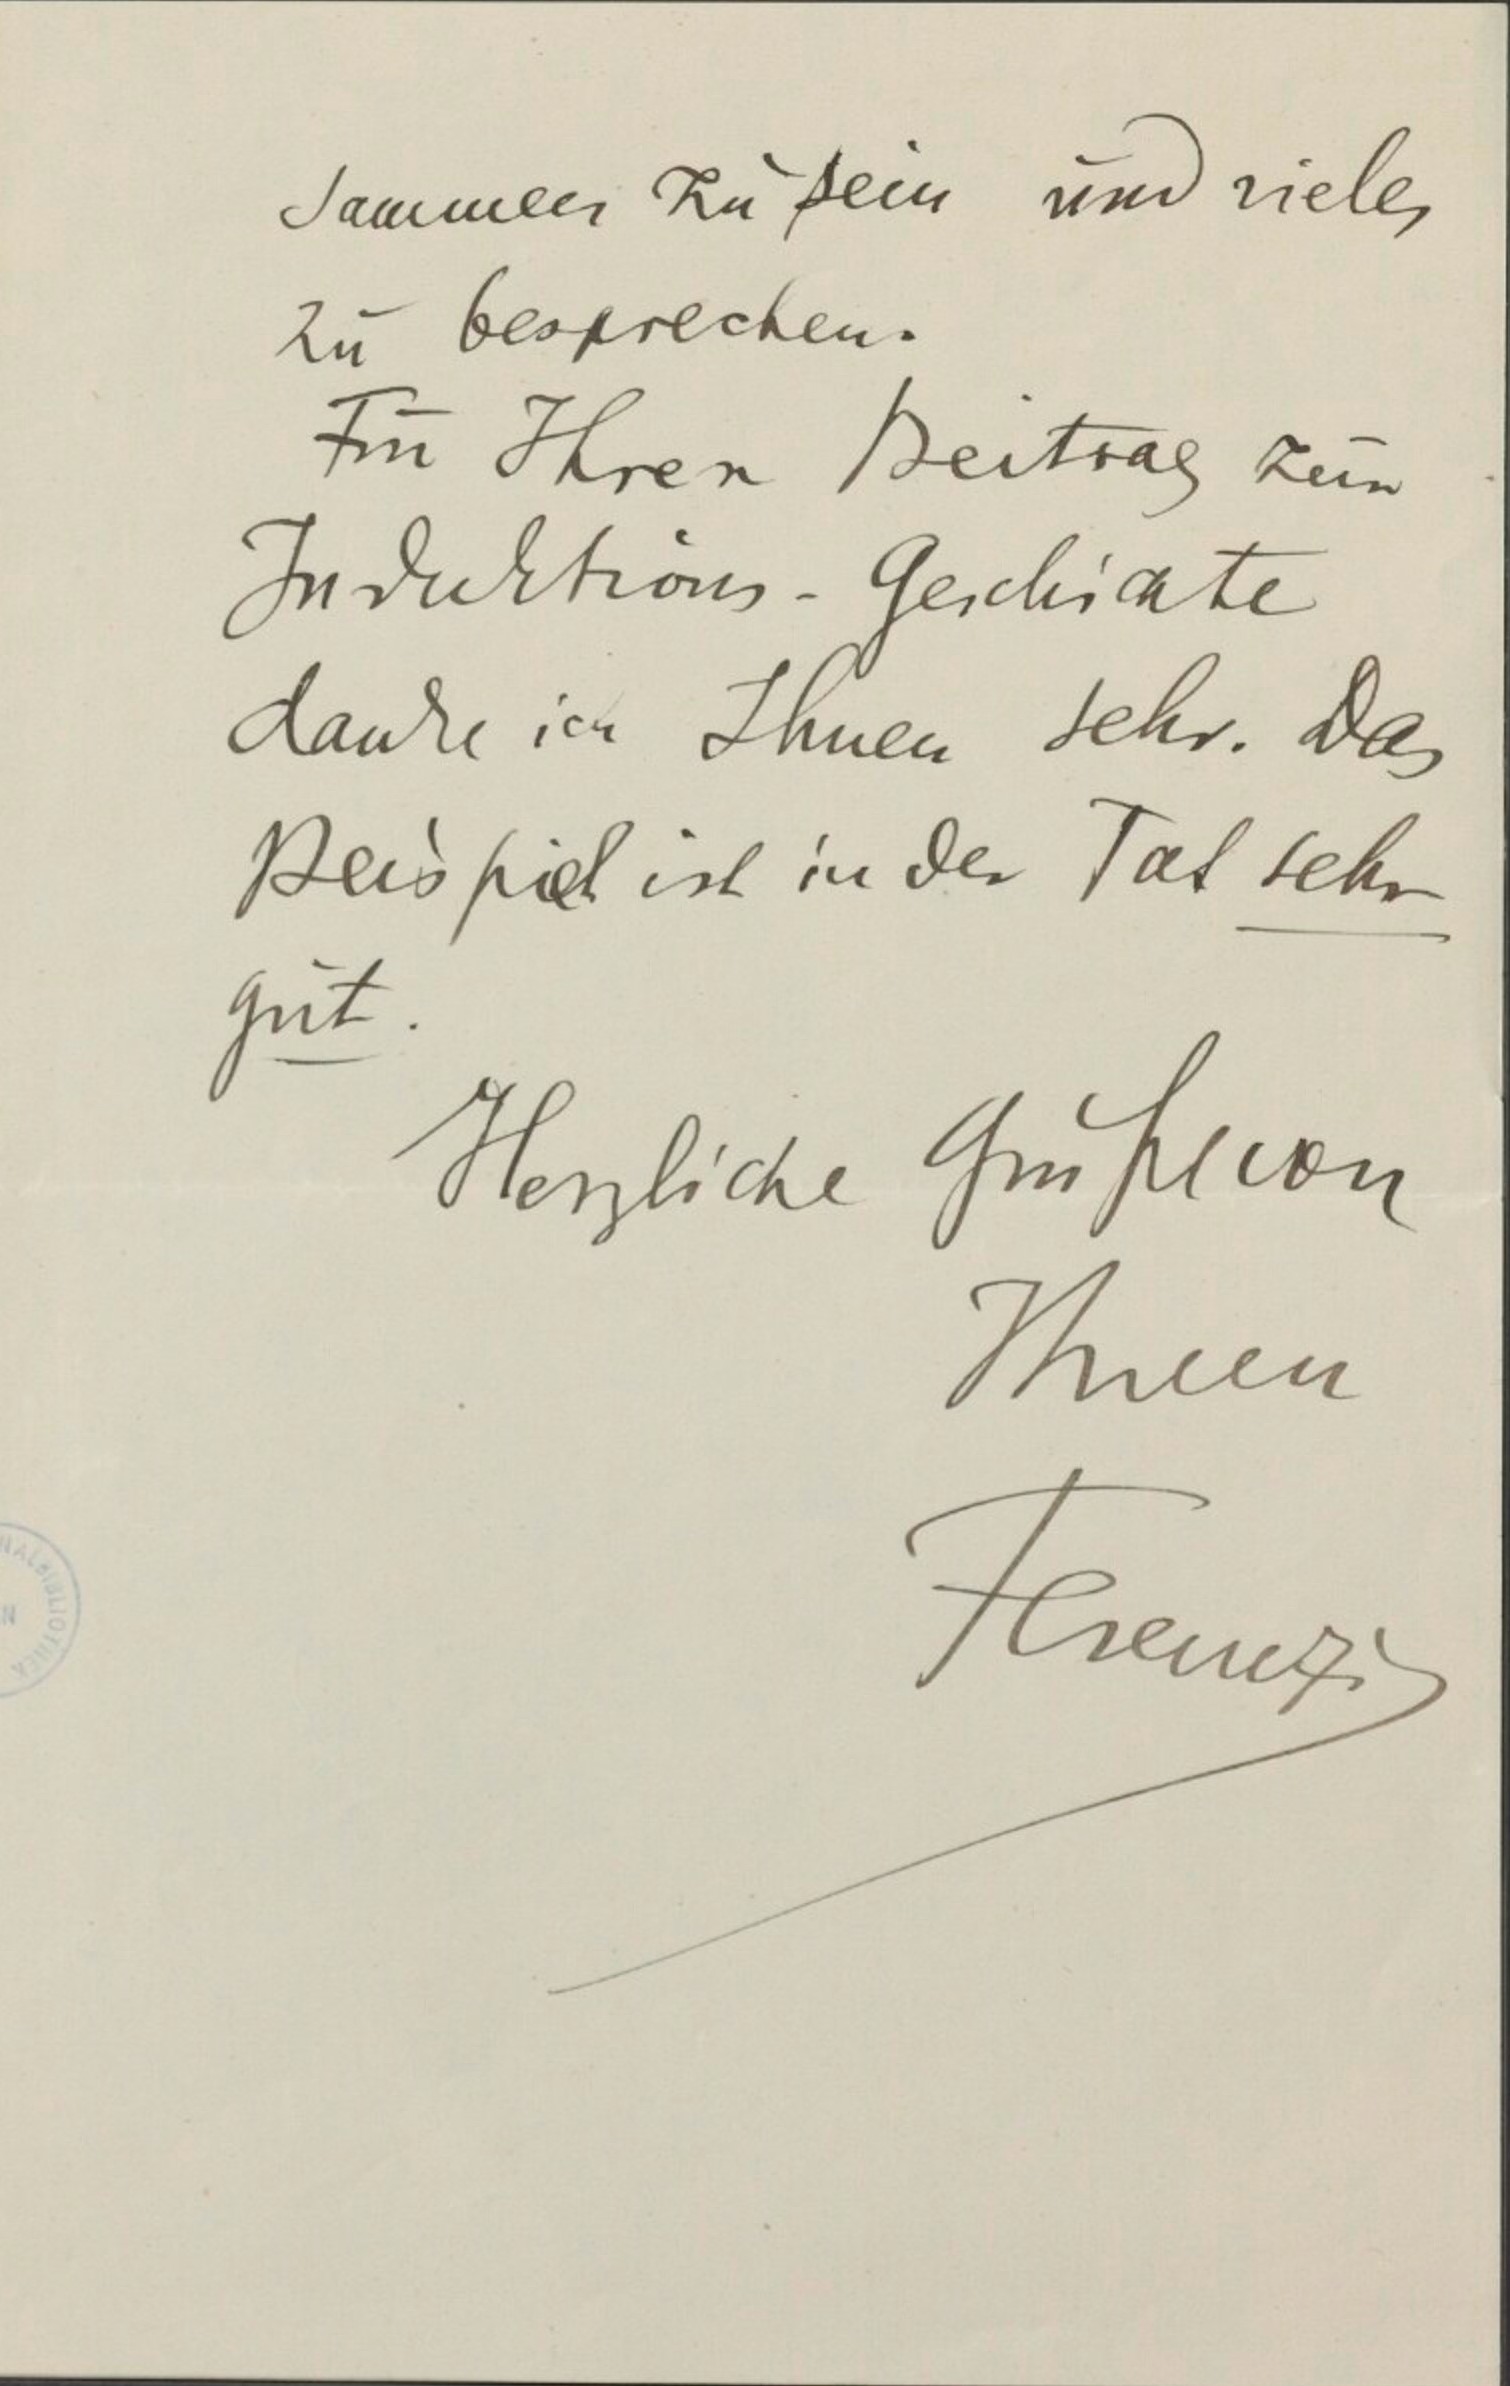 sammen zu sein und vieles
zu besprechen.
Für Ihren Beitrag zur
Induktions-Geschichte
danke ich Ihnen sehr. Das
Beispiel ist in der Tat sehr
gut.
Herzliche Grüße von
Ihrem
Ferenczi
NALBIBLIOTHEK
N